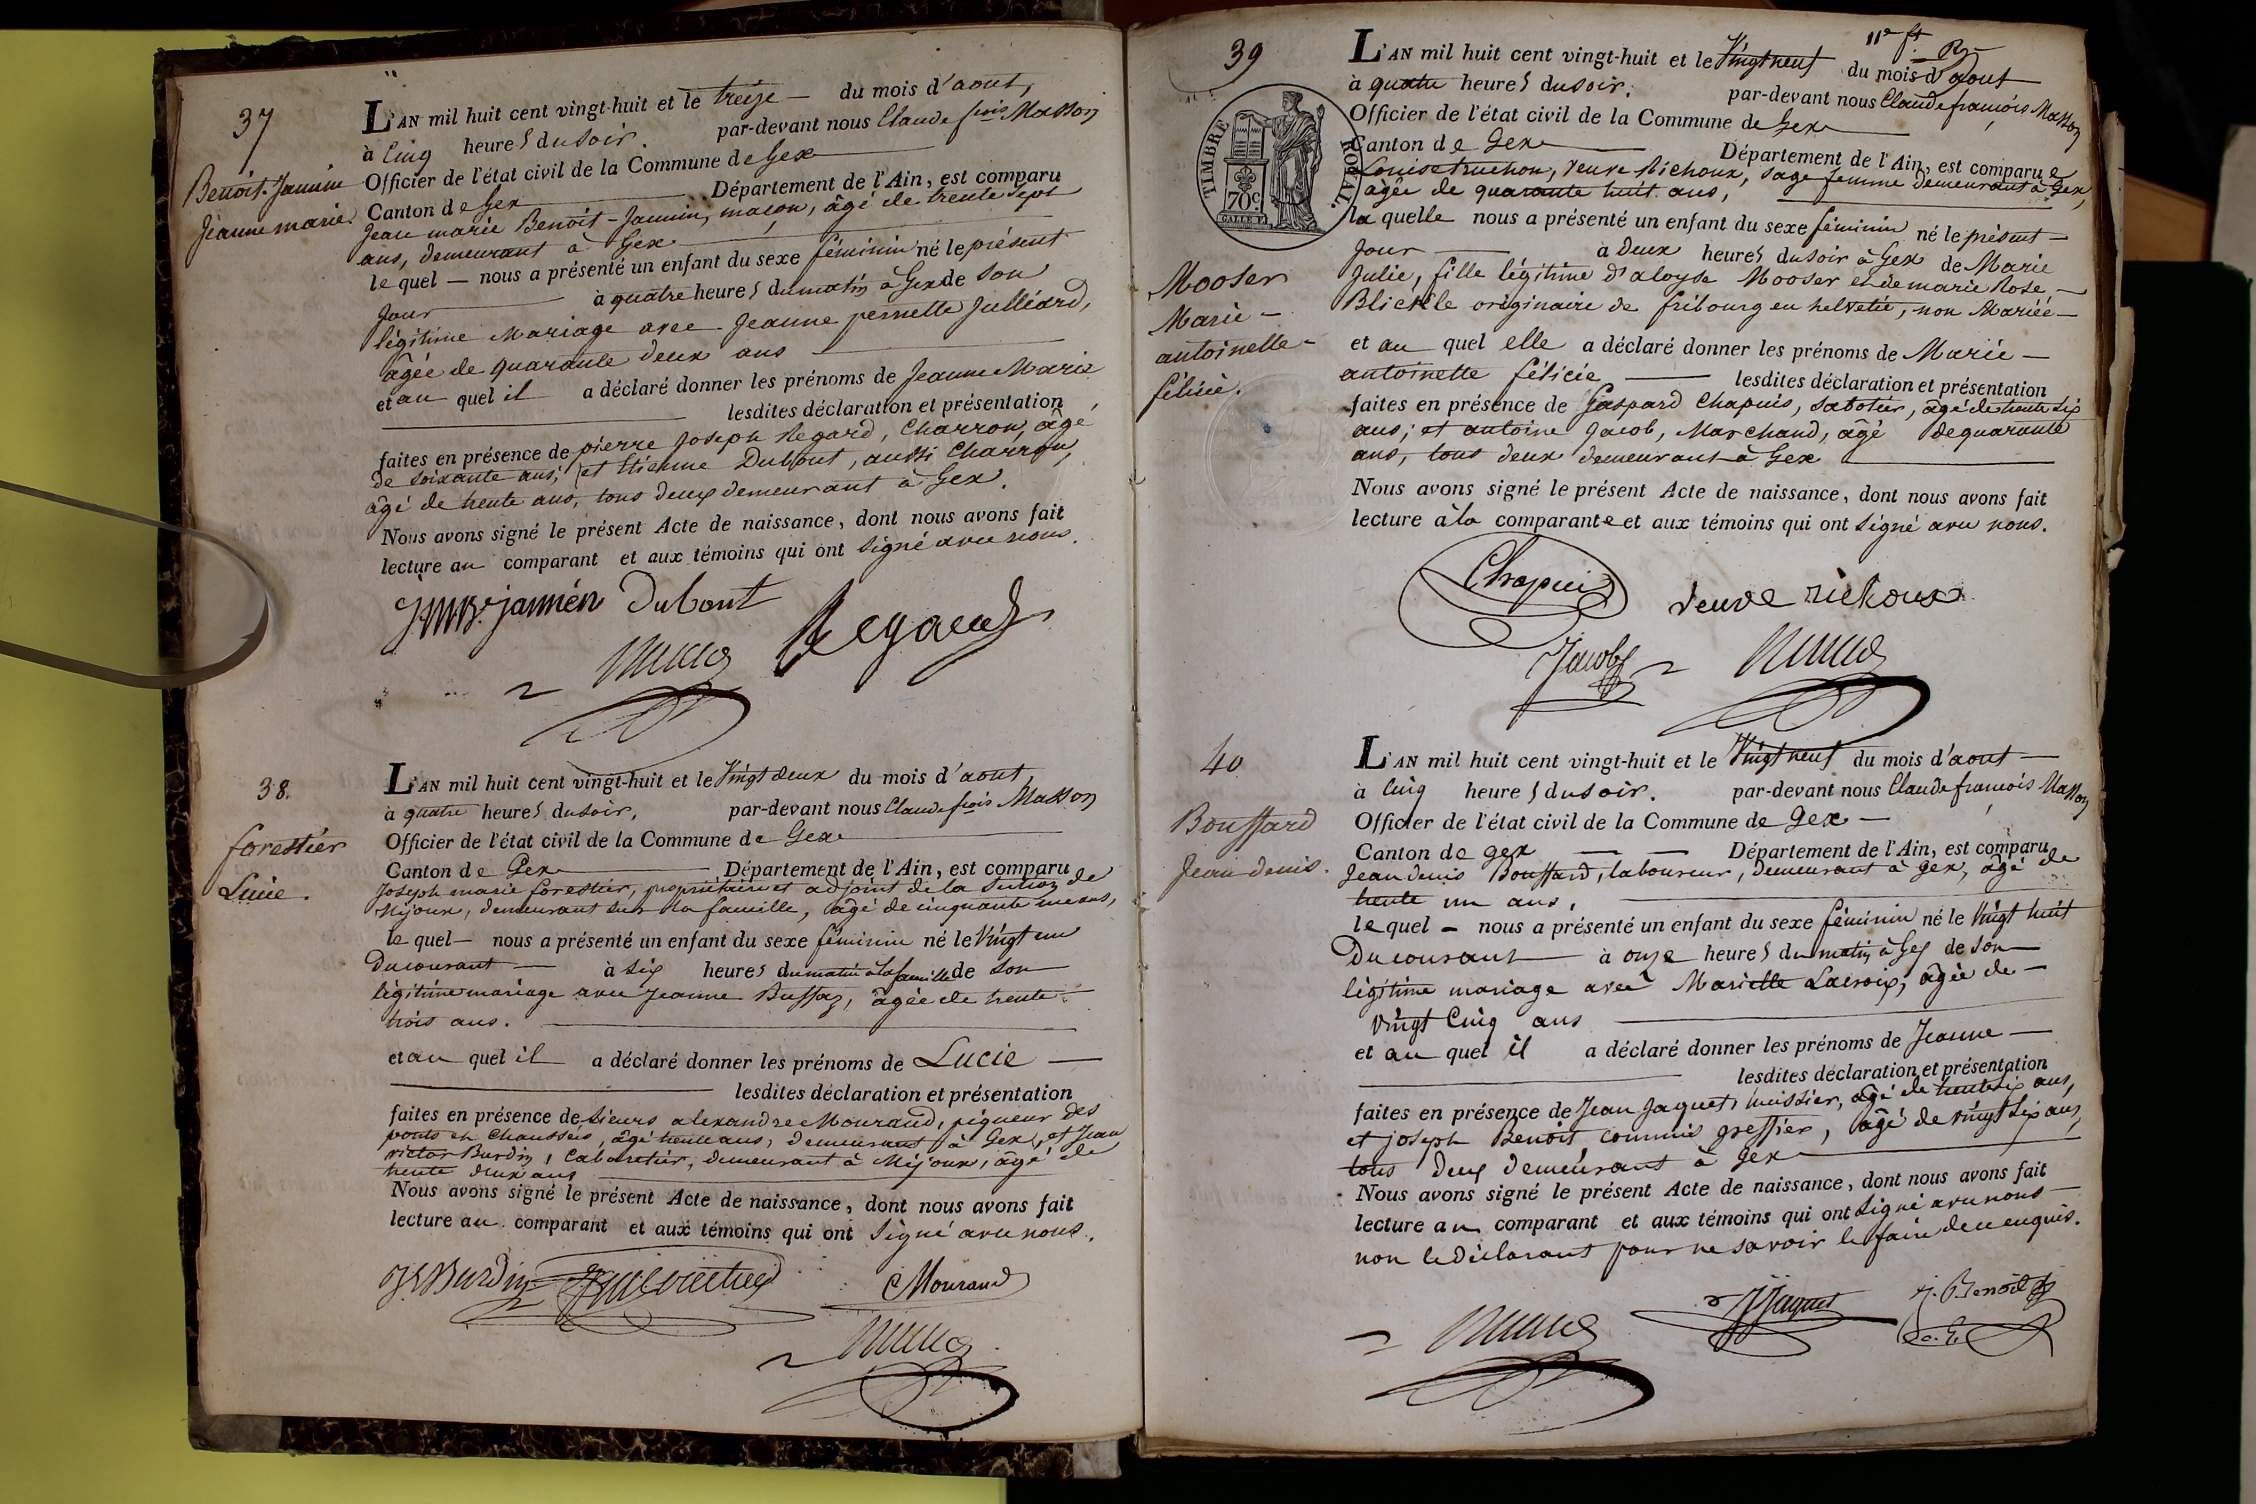 37
Benoit-Jannin
Jeanne marie
L'AN mil huit cent vingt-huit et le treize du mois d'aout,
à Cinq heures du soir. par-devant nous Claude frois Masson
Officier de l'état civil de la Commune de Gex
Canton de Gex Département de l'Ain, est comparu
Jean marie Benoit-Jannin, maçon, âgé de trente sept
ans, demeurant à Gex
le quel nous a présenté un enfant du sexe féminin né le présent
Jour à quatre heures du matin à Gex de son
légitime Mariage avec Jeanne pernette Julliard,
âgée de quarante deux ans
et au quel il a déclaré donner les prénoms de Jeanne Marie
lesdites déclaration et présentation
faites en présence de pierre Joseph Regard, Charron, âgé
de soixante ans, et Etienne Dubout, aussi Charron,
âgé de trente ans, tous deux demeurant à Gex.
Nous avons signé le présent Acte de naissance, dont nous avons fait
lecture au comparant et aux témoins qui ont signé avec nous.
Dubout
Regard
38.
forestier
Lucie.
L'AN mil huit cent vingt-huit et le Vingt deux du mois d'aout,
à quatre heures du soir, par-devant nous Claude frois Masson
Officier de l'état civil de la Commune de Gex
Canton de Gex Département de l'Ain, est comparu
Joseph marie forestier, propriétaire et adjoint de la Section de
Mijoux, demeurant sur la faucille, âgé de cinquante un ans,
le quel nous a présenté un enfant du sexe féminin né le Vingt un
Du courant à six heures du matin à la faucille de son
légitime mariage avec Jeanne Buffaz, âgée de trente
trois ans.
et au quel il a déclaré donner les prénoms de Lucie
lesdites déclaration et présentation
faites en présence de Sieurs alexandre Mouraud, piqueur des
ponts et Chaussées, âgé trente ans, demeurant à Gex, et Jean
victor Burdin, Cabaretier, demeurant à Mijoux, âgé de
trente deux ans
Nous avons signé le présent Acte de naissance, dont nous avons fait
lecture au comparant et aux témoins qui ont Signé avec nous.
JVBurdin
Mouraud
39
11e ft
L'AN mil huit cent vingt-huit et le Vingt neuf du mois d'aout
à quatre heures du soir. par-devant nous Claude françois Masson
Officier de l'état civil de la Commune de Gex
Canton de Gex Département de l'Ain, est comparue
Louise truchon, veuve Richoux, sage femme demeurant à Gex,
âgée de quarante huit ans,
TIMBRE ROYAL.
70 c
Mooser
Marie
antoinette
félicie.
la quelle nous a présenté un enfant du sexe féminin né le présent
Jour à Deux heures du soir à Gex de Marie
Julie, fille légitime d'aloyse Mooser et de marie Rose
Blickle originaire de fribourg en helvetie, non Mariée
et au quel elle a déclaré donner les prénoms de Marie
antoinette félicie lesdites déclaration et présentation
faites en présence de Gaspard Chapuis, sabotier, âgé de trente six
ans; et antoine Jacob, Marchand, âgé de quarante
ans, tous deux demeurant à Gex
Nous avons signé le présent Acte de naissance, dont nous avons fait
lecture à la comparante et aux témoins qui ont signé avec nous.
Chapuis
veuve richoux
Jacob
40
Bouffard
Jean denis.
L'AN mil huit cent vingt-huit et le Vingt neuf du mois d'aout
à Cinq heures du soir. par-devant nous Claude françois Masson
Officier de l'état civil de la Commune de Gex
Canton de gex Département de l'Ain, est comparu
Jean denis Bouffard, laboureur, demeurant à gex, âgé de
trente un ans,
le quel nous a présenté un enfant du sexe féminin né le Vingt huit
Du courant à onze heures du matin, à Gex de son
légitime mariage avec Mariette Lacroix, âgée de
vingt Cinq ans
et au quel il a déclaré donner les prénoms de Jeanne
lesdites déclaration et présentation
faites en présence de Jean Jaquet, huissier, âgé de trente six ans,
et joseph Benoit commis greffier, âgé de vingt six ans,
tous deux demeurant à Gex
Nous avons signé le présent Acte de naissance, dont nous avons fait
lecture au comparant et aux témoins qui ont signé avec nous
non le déclarant pour ne savoir le faire de ce enquis.
Jaquet
j. Benoit